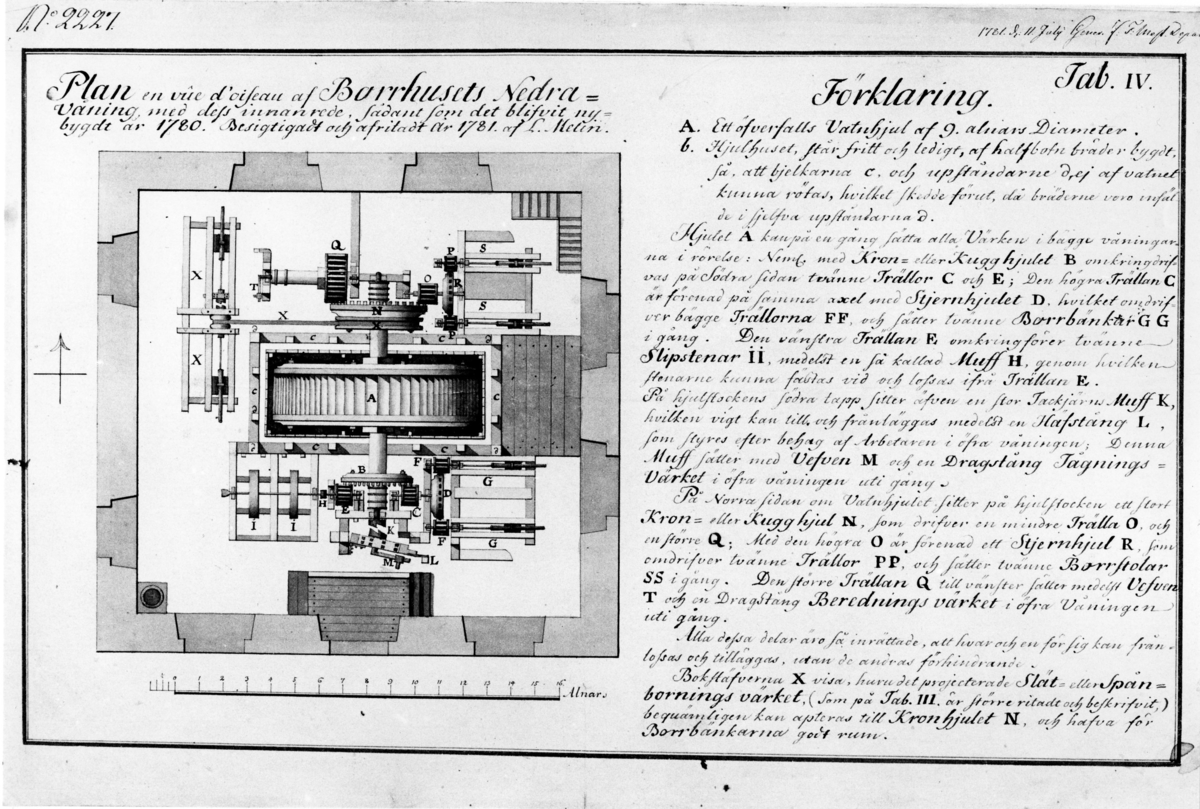 No. 2227.
1781. d. 11 Julij
Tab. IV.
Plan en vûe d'oiseau af Børrhusets Nedra=
våning, med dess innanrede, sådant som det blifvit ny=
bygdt år 1780. Besigtigadt och afritadt år 1781. af L. Melin.
Q
P
S
X
T
O
R
N
S
X
P
X
X
c
c
c
c
c
c
A
c
c
c
c
B
F
G
D
H
E
C
I
I
K
F
G
M
L
1
2
3
4
5
6
7
8
9
10
11
12
13
14
15
16
Alnar.
Förklaring.
A. Ett öfverfalls Vatuhjul af 9. alnars Diameter.
b. Hjulhuset, står fritt och ledigt, af halfbotn bräder bygdt,
så, att bjelkarna c, och upståndarne d, ej af vatnet
kunna rötas, hvilket skedde förut, då bräderne voro infäl
de i sjelfva upståndarna d.
Hjulet A kan på en gång sätta alla Värken i bägge våningar-
na i rörelse: Neml. med Kron= eller Kugghjulet B omkringdrif-
vas på Södra sidan tvänne Trällor C och E; Den högra Trällan C
är förenad på samma axel med Stjernhjulet D. hvilket omdrif-
ver bägge Trällorna FF, och sätter tvänne Børrbänkar GG
i gång. Den vänstra Trällan E omkringförer tvänne
Slipstenar II, medelst en så kallad Muff H, genom hvilken
stenarne kunna fästas vid och lossas ifrå Trällan E.
På hjulstockens södra tapp sitter äfven en stor Tackjärns Muff K,
hvilken vigt kan till, och frånläggas medelst en Hafstång L,
som styres efter behag af Arbetaren i öfra våningen; Denna
Muff sätter med Vefven M och en Dragstång Tägnings=
Värket i öfra våningen uti gång.
På Norra sidan om Vatuhjulet sitter på hjulstocken ett stort
Kron= eller Kugghjul N, som drifver en mindre Trälla O, och
en större Q; Med den högra O är förenad ett Stjernhjul R, som
omdrifver tvänne Trällor PP, och sätter tvänne Børrstolar
SS i gång. Den större Trällan Q till vänster sätter medelst Vefven
T och en Dragstång Berednings värket i öfra Våningen
uti gång.
Alla dessa delar äro så inrättade, att hvar och en för sig kan från-
lossas och tilläggas, utan de andras förhindrande.
Bokstafverna X visa, huru det projecterade Slät= eller Spån=
bornings värket, (Som på Tab. III. är större ritadt och beskrifvit,)
bequämligen kan apteras till Kronhjulet N, och hafva för
Børrbänkarna godt rum.